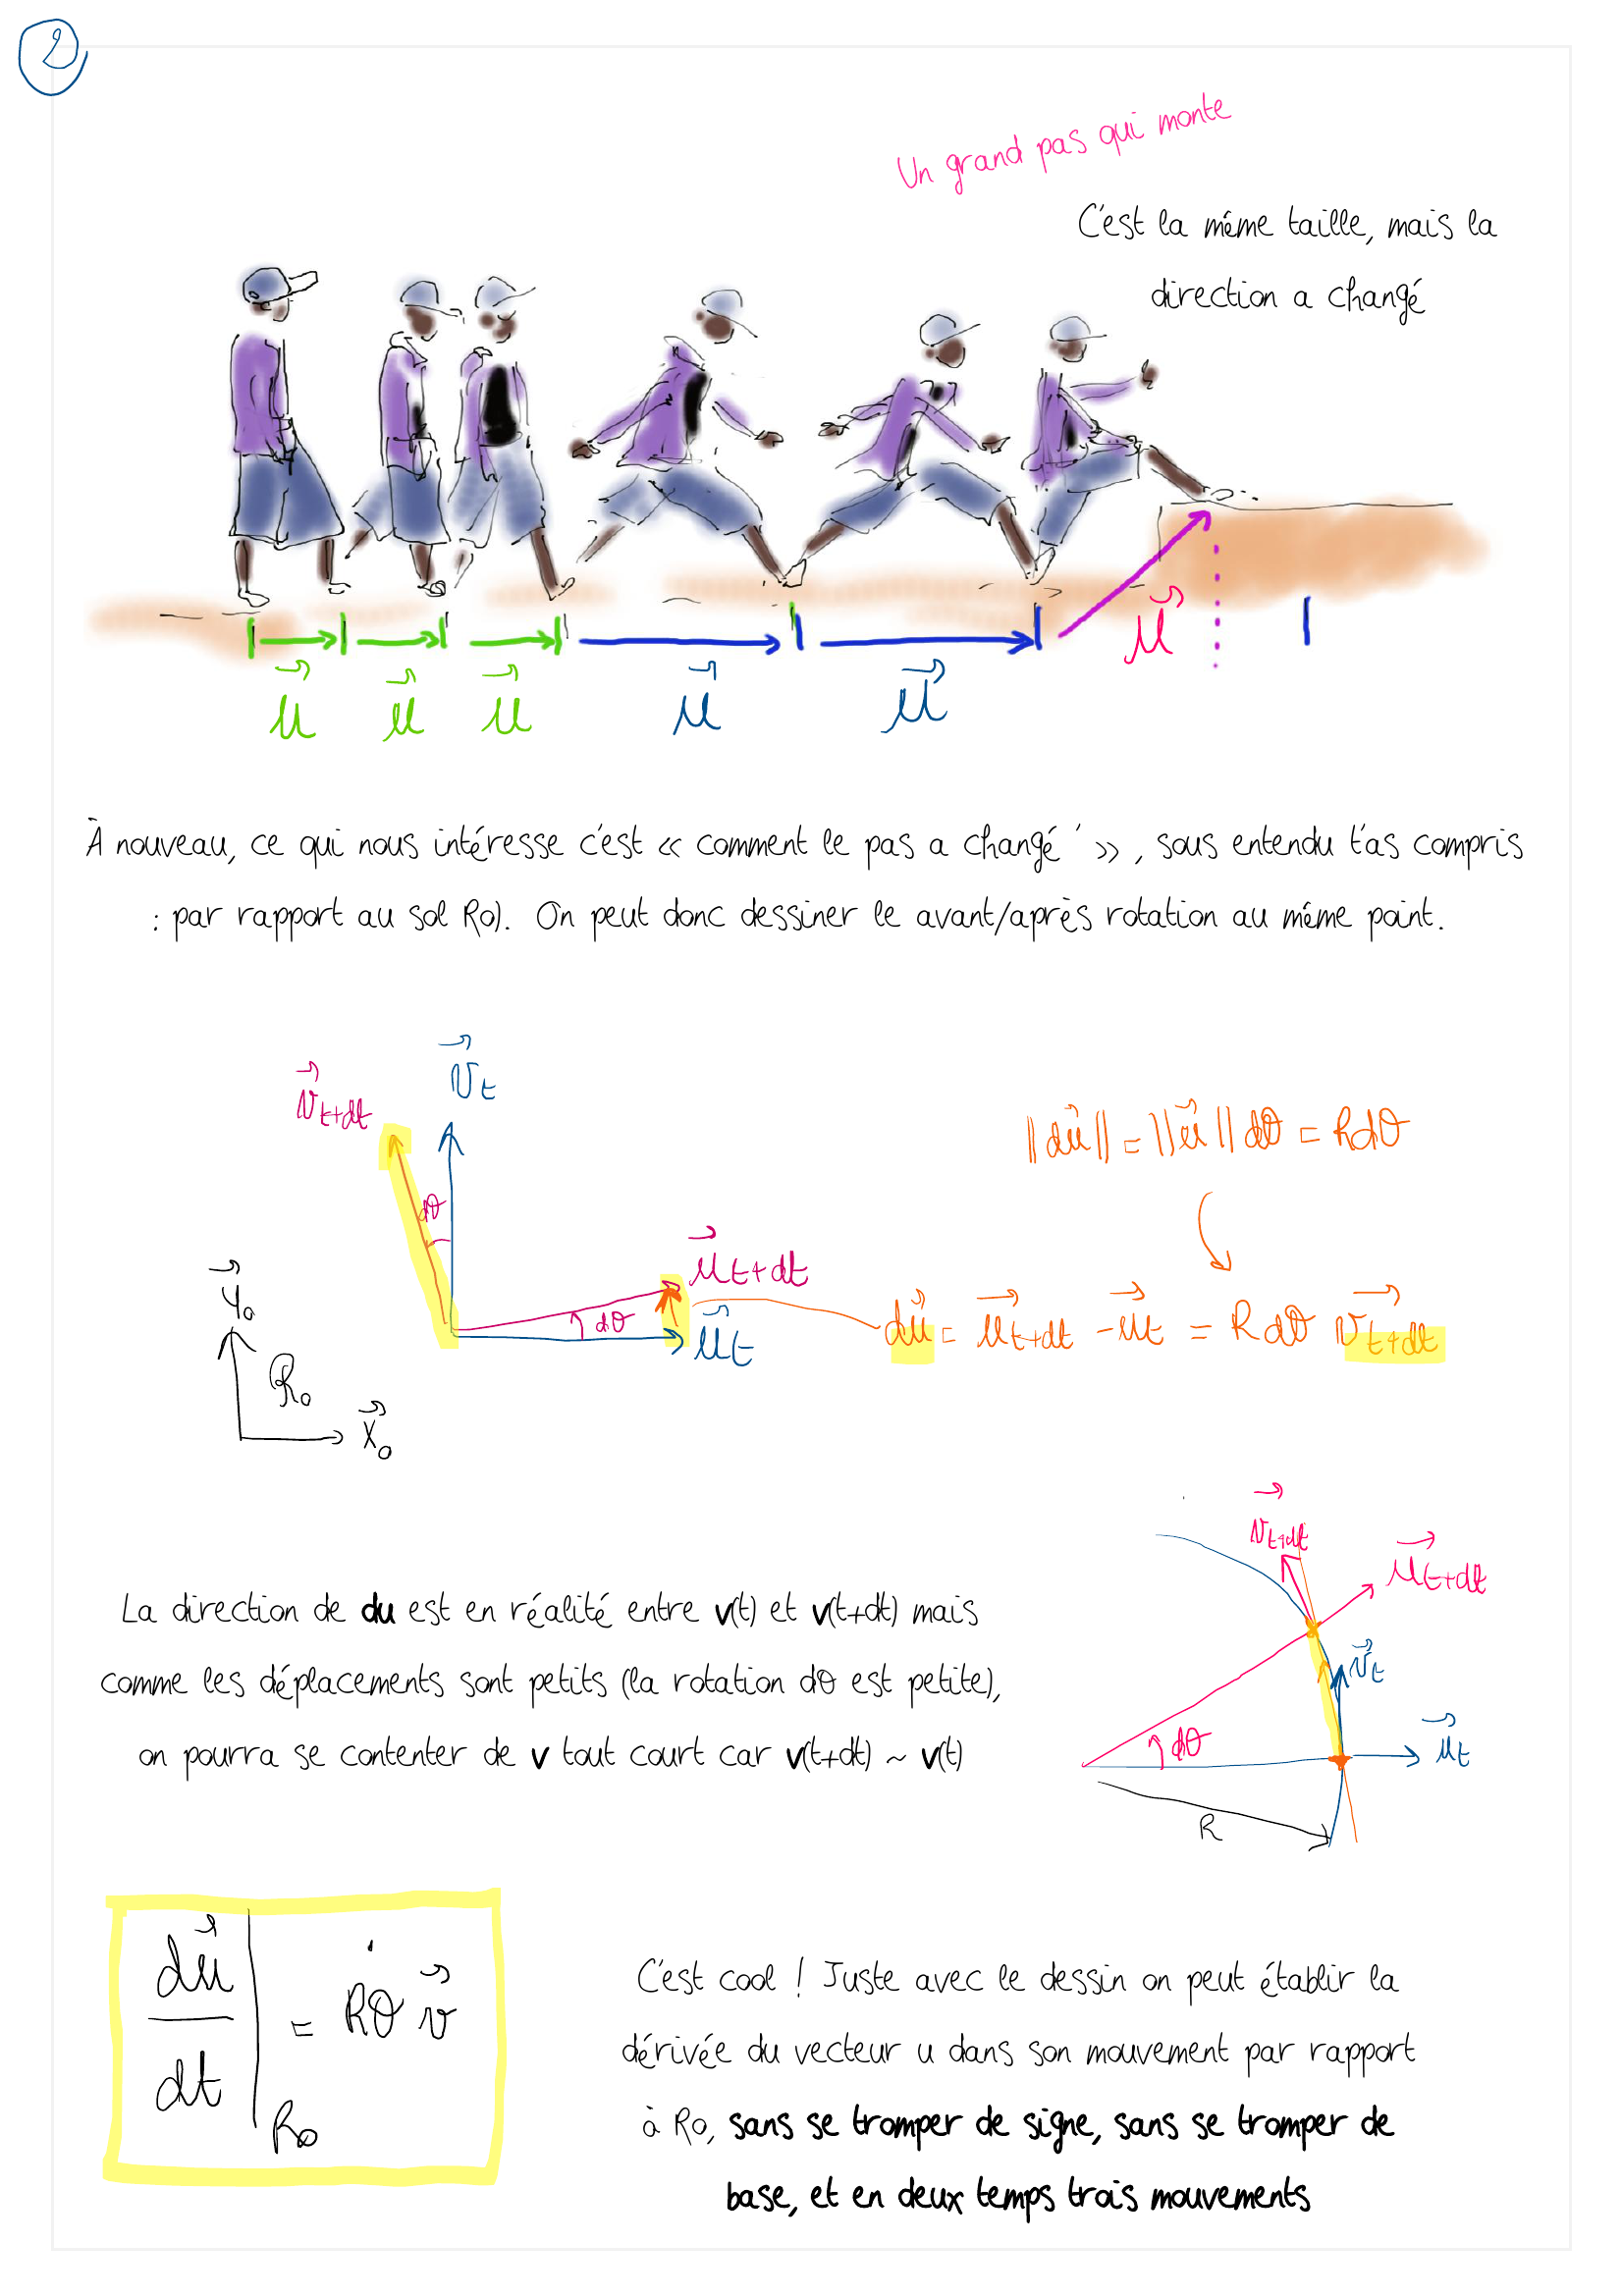 2
Un grand pas qui monte
C'est la même taille, mais la
direction a changé
u⃗ u⃗ u⃗ u⃗ u⃗ u⃗
À nouveau, ce qui nous intéresse c'est « comment le pas a changé ' », sous entendu t'as compris
: par rapport au sol Ro). On peut donc dessiner le avant/après rotation au même point.
v⃗t
v⃗t+dt
||du⃗|| = ||u⃗|| dθ = Rdθ
dθ
u⃗t+dt
dθ
u⃗t
du⃗ = u⃗t+dt - u⃗t = R dθ v⃗t+dt
y⃗o
Ro
x⃗o
v⃗t+dt
u⃗t+dt
La direction de du est en réalité entre v(t) et v(t+dt) mais
comme les déplacements sont petits (la rotation dθ est petite),
on pourra se contenter de v tout court car v(t+dt) ~ v(t)
v⃗t
dθ
u⃗t
R
du⃗/dt |Ro = Rθ̇ v⃗
C'est cool ! Juste avec le dessin on peut établir la
dérivée du vecteur u dans son mouvement par rapport
à Ro, sans se tromper de signe, sans se tromper de
base, et en deux temps trois mouvements